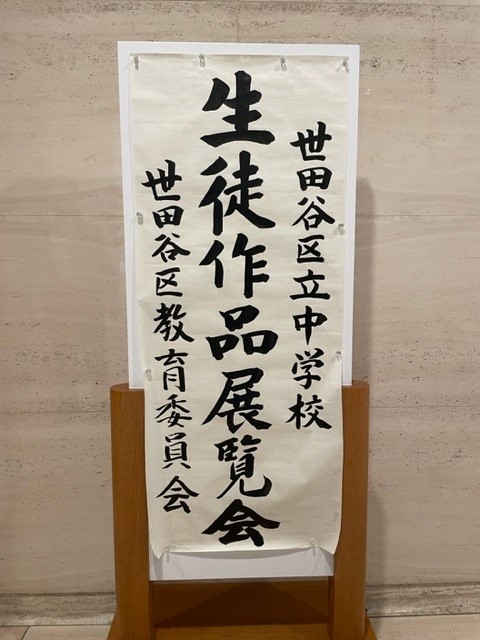 世田谷区立中学校
生徒作品展覧会
世田谷区教育委員会